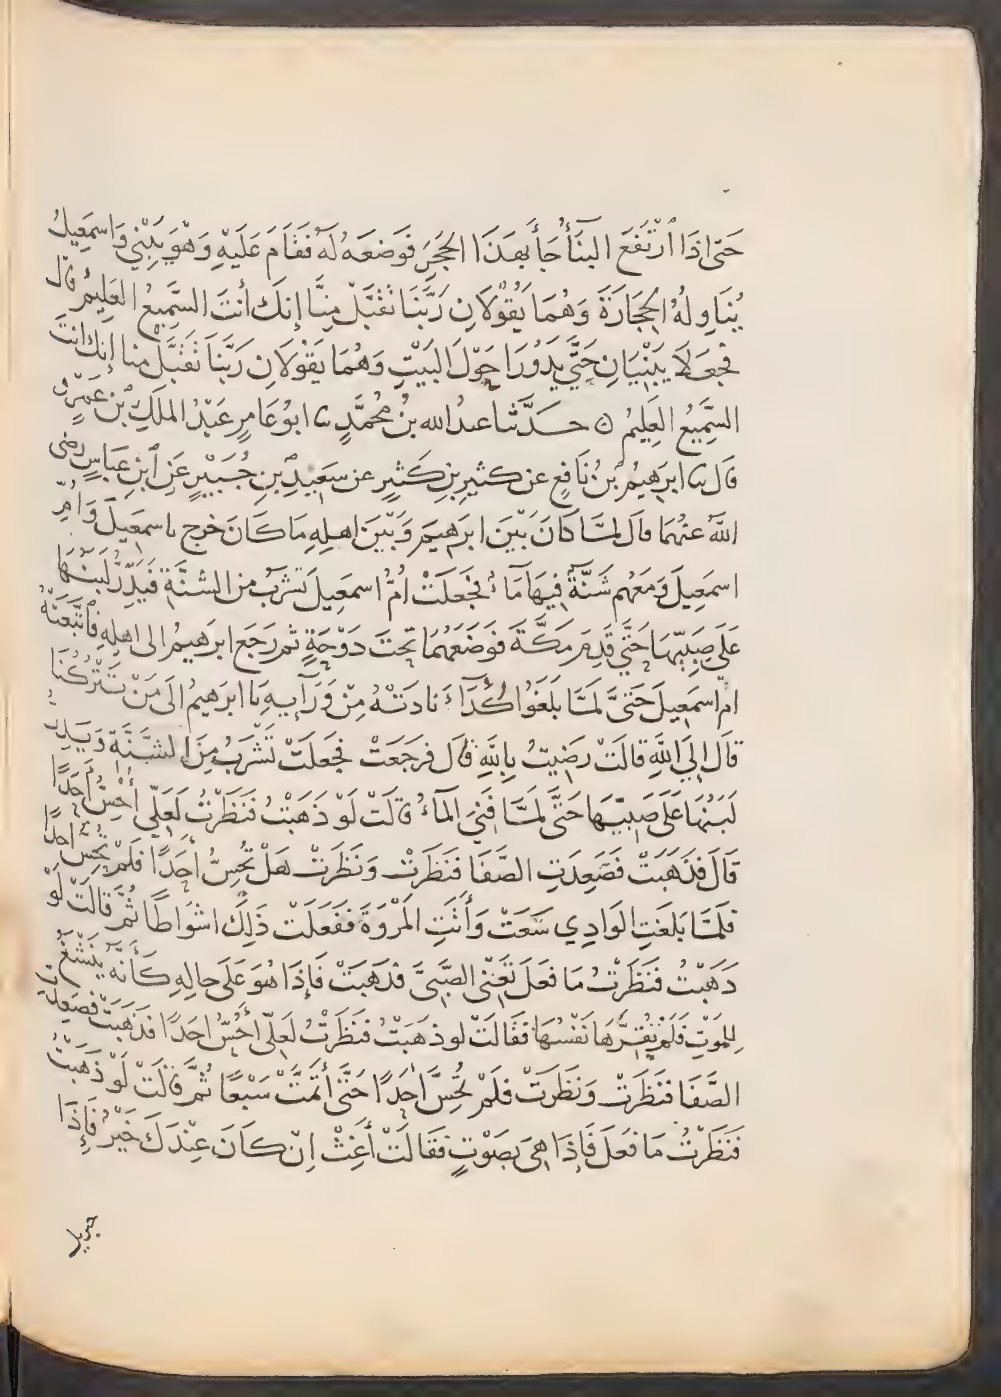 حَتّى اِذَا ٱرْتَفَعَ البنَآءُ جَآءَ بهَذَا الحَجَرِ فَوَضَعَهُ لَهُ فَقَامَ عَلَيْهِ وَهْوَ يَبْنِي وَاسمَعِيلُ
يُنَاوِلُهُ الحِجَارَةَ وَهُمَا يَقُوْلَانِ رَبَّنَا تَقَبَّلْ مِنَّا إِنكَ أنتَ السَّمِيعُ العَلِيمُ قَالَ
فجَعَلَا يَبْنِيَانِ حَتَّى يَدُورَا حَوْلَ البَيْتِ وَهُمَا يَقُوْلَانِ رَبَّنَا تَقَبَّلْ منا إِنكَ انتَ
السَّمِيعُ العَلِيمُ ۝ حَدَّثَنا عبدُ الله بنُ مُحمَّدٍ نا ابوُ عَامِرٍ عَبْدُ الملكِ بْنُ عَمْرٍو
قال نا ابرَهِيمُ بنُ نَافِعٍ عن كثيرِ بنِ كَثيرٍ عن سَعيدِ بنِ جُبَيْرٍ عَنِ ٱبْنِ عَبَّاسٍ رضى
اللهُ عنهُمَا قال لمَّا كَانَ بَيْنَ ابرَهِيمَ وَبَيْنَ اهلِهِ مَا كَانَ خرج باسمعِيلَ وَأُمِّ
اسمَعِيلَ وَمَعَهُم شَنَّةٌ فِيهَا مَاءٌ فجَعَلَتْ اُمُّ اسمَعِيلَ تَشرَبُ منَ الشنَّةِ فيَدِرُّ لَبَنُهَا
عَلَى صَبِيِّهَا حَتَّى قَدِمَ مَكَّةَ فَوَضَعَهُمَا تحتَ دَوْحَةٍ ثم رَجَعَ ابرَهيمُ الى اهلِهِ فَاتَّبَعَتْهُ
ام اسمَعِيلَ حَتىَّ لَمَّا بَلَغَوُا كُدَآءَ نَادَتْهُ مِنْ وَرَآيِهِ يَا ابرَهِيمُ الَى مَنْ تَتْرُكُنَا
قَالَ إلَى اللَّهِ قَالَتْ رَضِيتُ بِاللَّهِ قَال فرَجَعَتْ فجَعلَتْ تَشْرَبُ مِنَ الشنَّةِ وَيَدِرُّ
لَبَنُهَا عَلَى صَبِيِّهَا حَتَّى لَمَّا فَنِيَ المآءُ قَالَتْ لَوْ ذَهَبْتُ فَنَظَرْتُ لَعَلِّي أُحِسُّ أَحَدًا
قَالَ فذَهَبَتْ فَصَعِدَتِ الصَّفَا فنَظَرَتْ وَنَظَرَتْ هَلْ تُحِسُّ أحَدًا فلَمْ تُحِسَّ احدًا
فلَمَّا بَلَغَتِ الوَادِي سَعَتْ وَأَتَتِ المَرْوَةَ ففَعَلَتْ ذَلِكَ اشوَاطًا ثُمَّ قالَتْ لَوْ
ذَهَبْتُ فَنَظَرْتُ مَا فَعَلَ تَعْنى الصَّبىَّ فذَهَبَتْ فَإِذَا هُوَ عَلَى حالِهِ كَأَنَّهُ يَنْشَغُ
لِلمَوْتِ فَلَم تُقِرَّهَا نَفْسُهَا فقَالَتْ لو ذهَبْتُ فنَظَرْتُ لَعَلّى أُحِسُّ احَدًا فذَهَبَتْ فصَعِدَتِ
الصَّفَا فنَظَرَتْ وَنَظَرَتْ فلَمْ تُحِسَّ أحَدًا حَتَّى أتَمَّتْ سَبْعًا ثُمَّ قَالَتْ لَوْ ذَهَبْتُ
فَنَظَرْتُ مَا فَعَلَ فَإِذَا هِىَ بصَوْتٍ فقَالَتْ أَغِثْ إِنْ كَانَ عِنْدَكَ خَيْرٌ فَإِذَا
جبريل